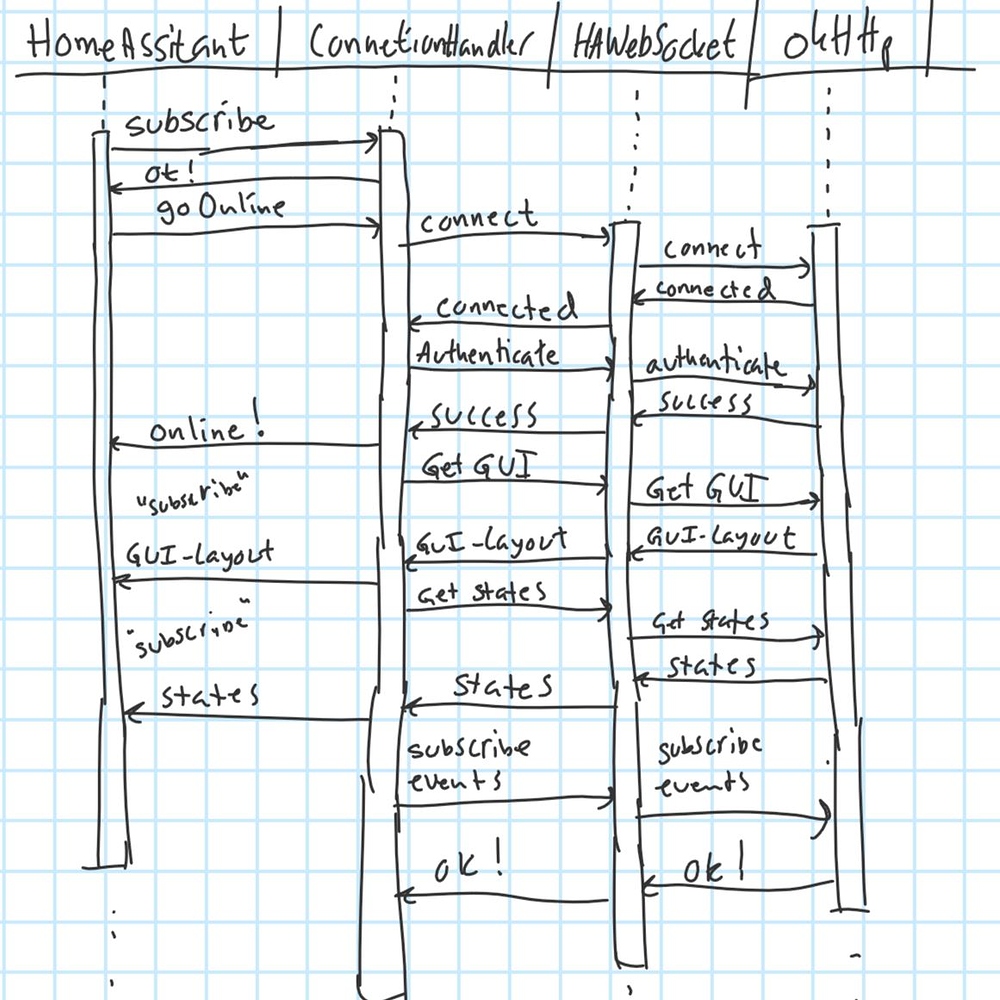 HomeAssitant
ConnetionHandler
HAWebSocket
OkHttp
subscribe
ok!
go Online
connect
connect
connected
connected
Authenticate
authenticate
success
success
online!
Get GUI
"subscribe"
Get GUI
GUI-Layout
GUI-Layout
GUI-Layout
Get states
"subscribe"
Get states
states
states
states
subscribe
events
subscribe
events
ok!
ok!